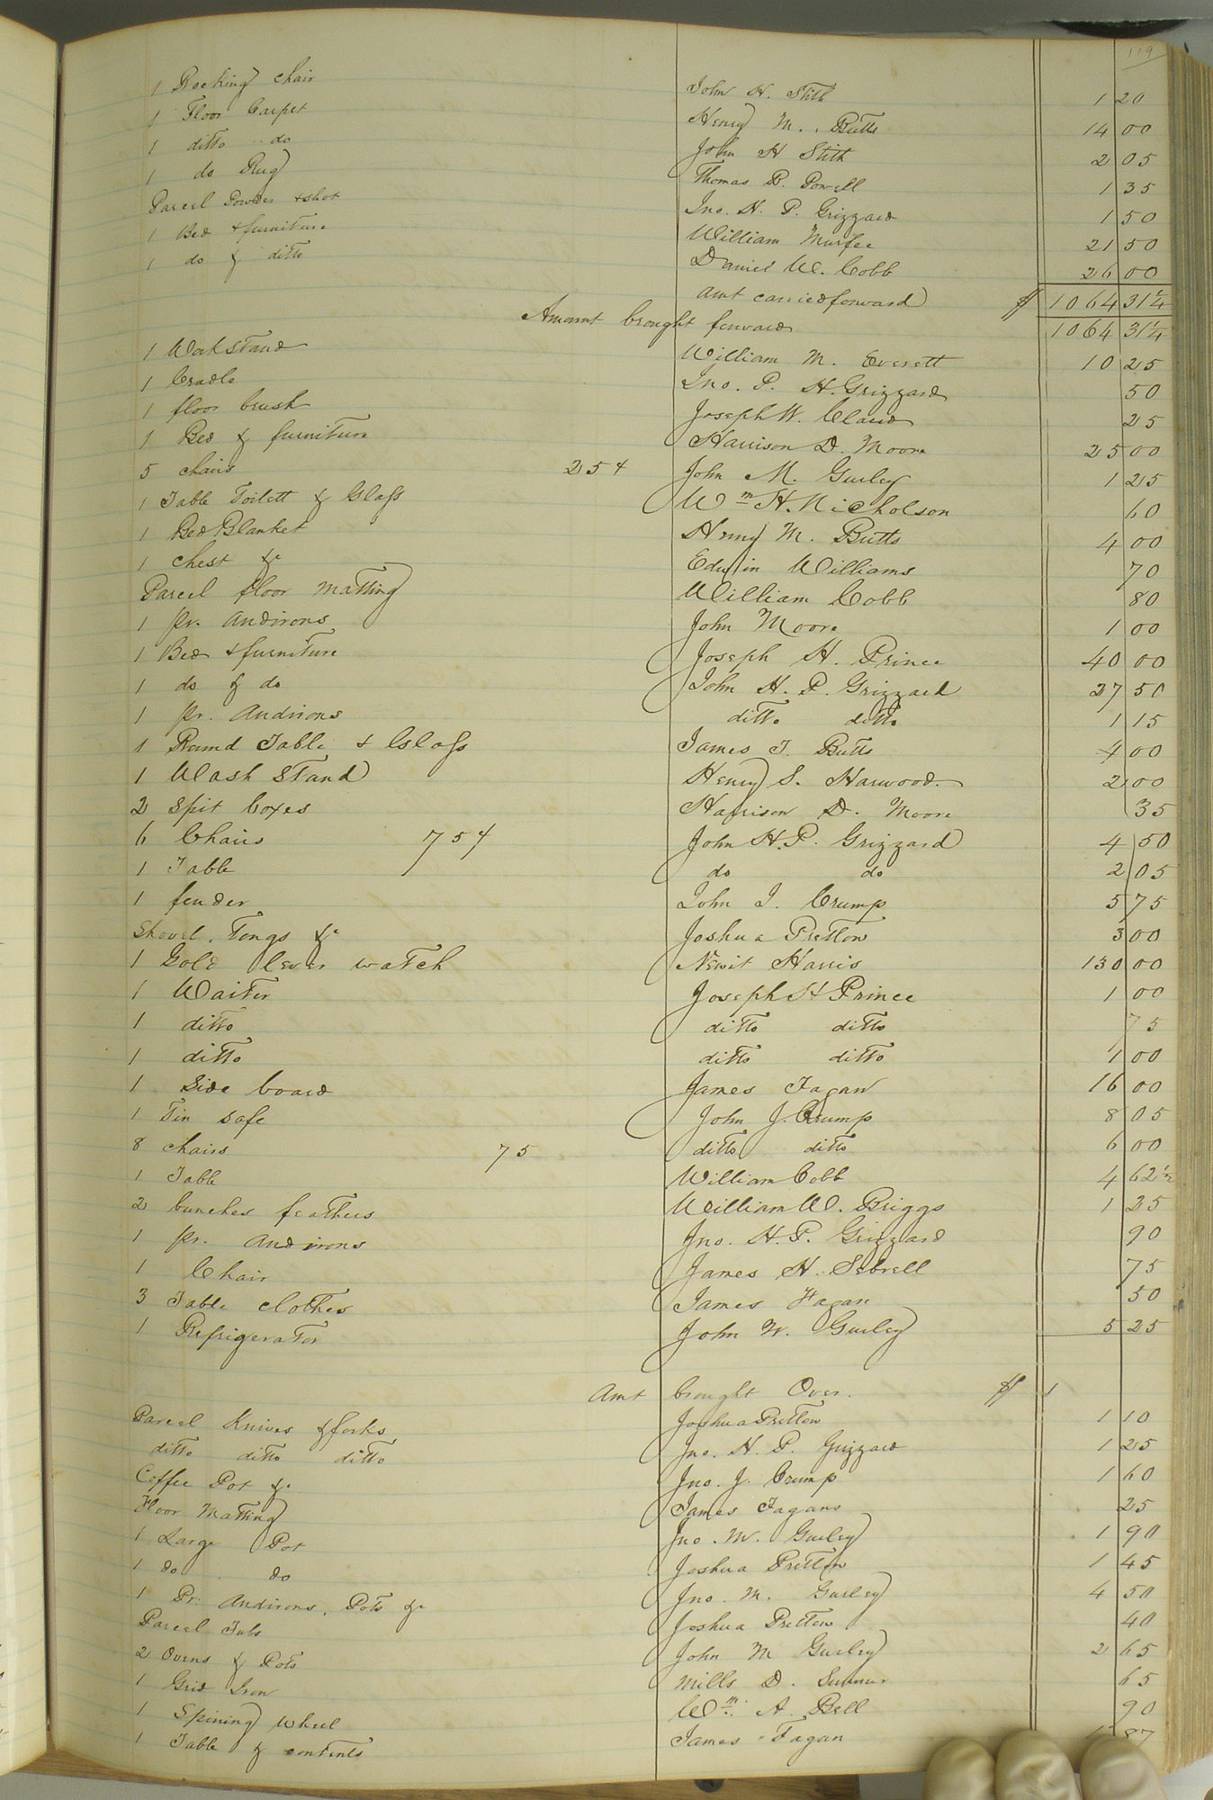 119
1 Rocking Chair John H. Stith 1 20
1 Floor Carpet Henry M. Butts 14 00
1 ditto do John H Stith 2 05
1 do Rug Thomas B. Powell 1 35
Parcel Powder & shot Jno. H. P. Grizzard 1 50
1 Bed & furniture William Murfee 21 50
1 do & ditto Daniel W. Cobb 26 00
amt carried forward $ 1064 31 1/4
Amount brought forward 1064 31 1/4
1 Workstand William M. Everett 10 25
1 Cradle Jno. P. H. Grizzard 50
1 floor brush Joseph W. Claud 25
1 Bed & furniture Harrison D. Moore 25 00
5 chairs 25 ¢ John M. Gurley 1 25
1 Table Toilett & Glass Wm H. Nicholson 60
1 Bed Blanket Henry M. Butts 4 00
1 chest &c Edwin Williams 70
Parcel floor Matting William Cobb 80
1 pr. Andirons John Moore 1 00
1 Bed & furniture Joseph H. Prince 40 00
1 do & do John H. P. Grizzard 27 50
1 pr. Andirons ditto ditto 1 15
1 Round Table & Glass James T. Butts 4 00
1 Wash Stand Henry S. Harwood 2 00
2 Spit boxes Harrison D. Moore 35
6 Chairs 75 ¢ John H. P. Grizzard 4 50
1 Table do do 2 05
1 fender John J. Crump 5 75
Shovel, Tongs &c Joshua Pretlow 3 00
1 Gold lever watch Newit Harris 130 00
1 Waiter Joseph H Prince 1 00
1 ditto ditto ditto 75
1 ditto ditto ditto 1 00
1 Side board James Fagan 16 00
1 Tin safe John J. Crump 8 05
8 chairs 75 ditto ditto 6 00
1 Table William Cobb 4 62 1/2
2 bunches feathers William W. Briggs 1 25
1 pr. Andirons Jno. H. P. Grizzard 90
1 Chair James H. Sebrell 75
3 Table clothes James Fagan 50
1 Refrigerator John W. Gurley 5 25
Amt brought Over. $ 1
Parcel Knives & forks Joshua Pretlow 1 10
ditto ditto ditto Jno. H. P. Grizzard 1 25
Coffee Pot &c Jno. J. Crump 1 60
Floor Matting James Fagans 25
1 Large Pot Jno. M. Gurley 1 90
1 do do Joshua Pretlow 1 45
1 Pr. Andirons, Pots &c Jno. M. Gurley 4 50
Parcel Tubs Joshua Pretlow 40
2 Ovens & Pots John M Gurley 2 65
1 Grid Iron Mills D. 65
1 Spining Wheel Wm. A. Bell 90
1 Table & contents James Fagan 87